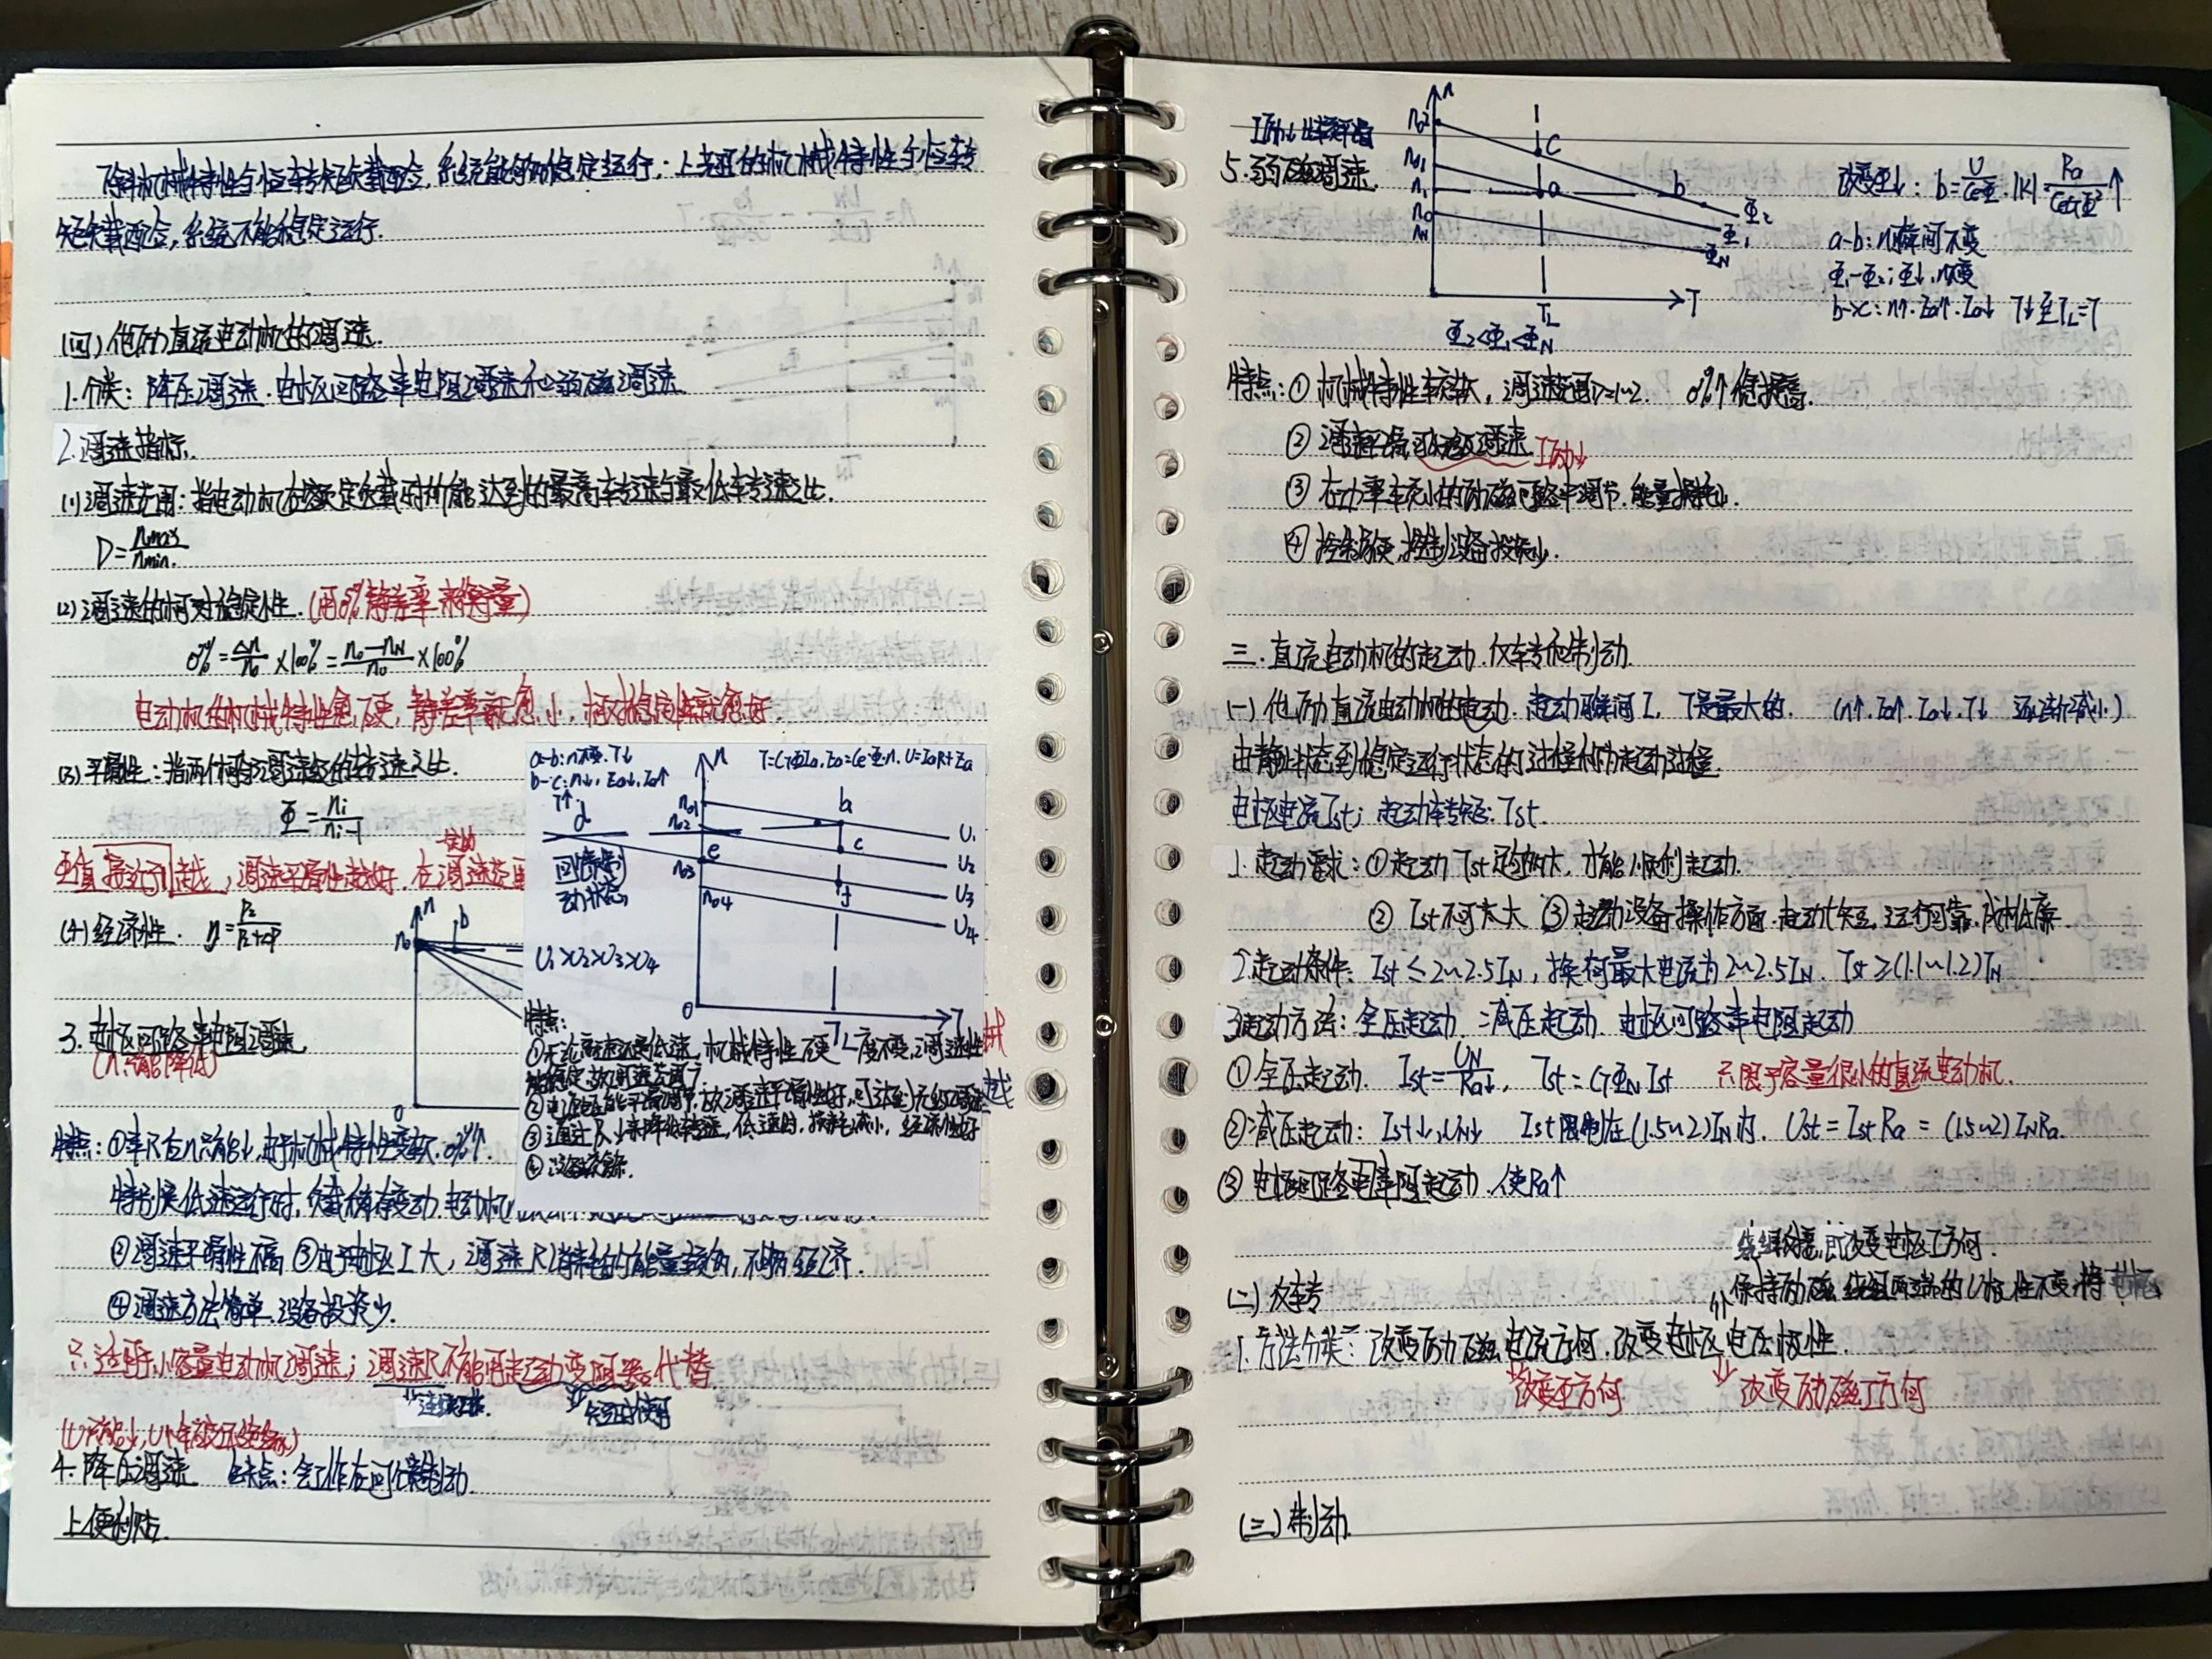 下斜机械特性与恒转矩负载配合,系统能够稳定运行;上翘的机械特性与恒转
矩负载配合,系统不能稳定运行.
(四)他励直流电动机的调速.
1.分类:降压调速.电枢回路串电阻调速和弱磁调速
2.调速指标.
(1)调速范围:指电动机在额定负载时所能达到的最高转速与最低转速之比.
D=nmax/nmin.
(2)调速的相对稳定性.(用δ%静差率来衡量)
δ%=Δn/n0×100%=(n0-nN)/n0×100%
电动机的机械特性愈硬,静差率就愈小,相对稳定性就愈好.
(3)平滑性:指两个相邻调速级的转速之比.
Φ=ni/ni-1
Φ值接近1越,调速平滑性越好.在
一定的
调速范围
(4)经济性. η=P2/(P2+ΔP)
n
n0
b
0
3.电枢回路串电阻调速
(n只能降低)
特点:①串R后n只能↓,由于机械特性变软.δ%↑.
特别是低速运行时,负载稍有变动.电动机
②调速平滑性不高 ③由于电枢I大,调速R消耗的能量较多,不够经济.
④调速方法简单.设备投资少.
只适用小容量电动机调速;调速R不能用起动变阻器代替
连续工作.
短时使用
(U只能↓,U
4.降压调速 缺点:会工作在回馈制动
上便利贴.
a-b:n不变.T↓
b-c:n↓,Ea↓,Ia↑
T↑
d
回馈制
动状态
n
T=CTΦIa,Ea=CeΦn,U=IaR+Ea
n01
n02
n03
n04
a
b
c
e
f
U1
U2
U3
U4
U1>U2>U3>U4
0
TL
T
特点:
①无论高速还是低速,机械特性硬度不变,调速性
能稳定,故调速范围广.
②电源电压能平滑调节,故调速平滑性好,可达到无级调速
③通过U↓来降低转速,低速时,损耗减小,经济性好
④设备
5.弱磁调速.
n
n02
n01
n1
n0
nN
c
a
b
Φ2
Φ1
ΦN
TL
T
Φ2<Φ1<ΦN
改变Φ↓: b=U/CeΦ.|K|=Ra/CeCTΦ²↑
a-b:n瞬间不变
Φ1-Φ2;Φ↓,n不变
b→c:n↑.Ea↑.Ia↓ T↓至TL=T
特点:①机械特性较软,调速范围D=1~2. δ%↑
②调速平滑,可无级调速 I励↓
③在功率较小的励磁回路中调节.能量损耗小.
④控制方便,控制设备投资少.
三.直流电动机的起动.反转和制动.
(一)他励直流电动机的起动.起动瞬间I,T是最大的. (n↑.Ea↑.Ia↓.T↓ 逐渐减小.)
由静止状态到稳定运行状态的过程称为起动过程
电枢电流Ist;起动转矩:Tst.
1.起动要求:①起动Tst足够大,才能顺利起动.
②Ist不可太大 ③起动设备操作方面.起动时短.运行可靠.成本低廉.
2.起动条件:Ist≤2~2.5IN,换向最大电流为2~2.5IN. Tst≥(1.1~1.2)TN
3.起动方法:全压起动.减压起动.电枢回路串电阻起动
①全压起动. Ist=UN/Ra↓, Tst=CTΦNIst 只限于容量很小的直流电动机.
②减压起动:Ist↓,UN↓ Ist限制在(1.5~2)IN内. Ust=IstRa=(1.5~2)INRa.
③电枢回路串电阻起动.使Ra↑
绕组反接,即改变电枢I方向.
(二)反转
保持励磁绕组两端的U极性不变,将电枢
1.方法分类:改变励磁电流方向.改变电枢电压极性.
改变Φ方向
改变励磁I方向
(三)制动.